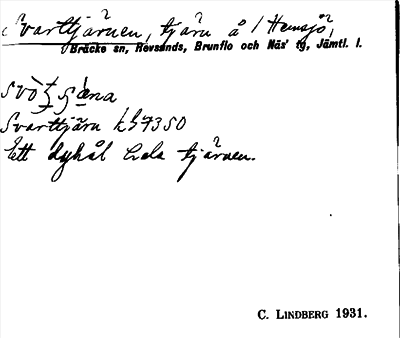 Svarttjärnen, tjärn å / Hemsjö,
Bräcke sn, Revsunds, Brunflo och Näs' tg, Jämtl. l.
Svarttjärn kh 7350
Ett dyhål hela tjärnen.
C. LINDBERG 1931.